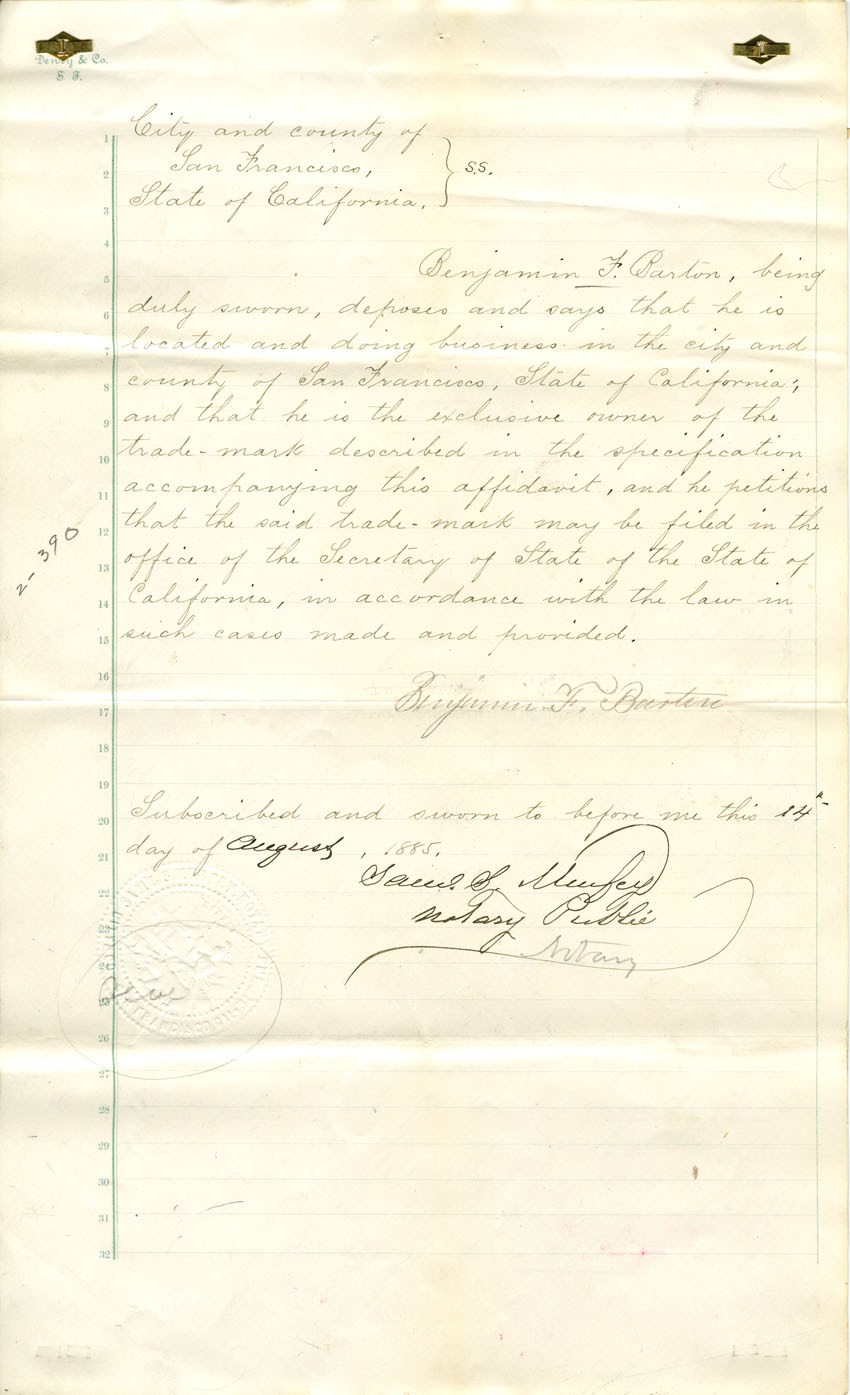 & Co.
S. F.
City and county of
San Francisco, } s.s.
State of California.
Benjamin F. Barton, being
duly sworn, deposes and says that he is
located and doing business in the city and
county of San Francisco, State of California;
and that he is the exclusive owner of the
trade-mark described in the specification
accompanying this affidavit, and he petitions
that the said trade-mark may be filed in the
office of the Secretary of State of the State of
California, in accordance with the law in
such cases made and provided.
Benjamin F. Barton
Subscribed and sworn to before me this 14th
day of August, 1885.
Saml. S. Murfey
Notary Public
Notary
2-390
1
2
3
4
5
6
7
8
9
10
11
12
13
14
15
16
17
18
19
20
21
22
23
24
25
26
27
28
29
30
31
32